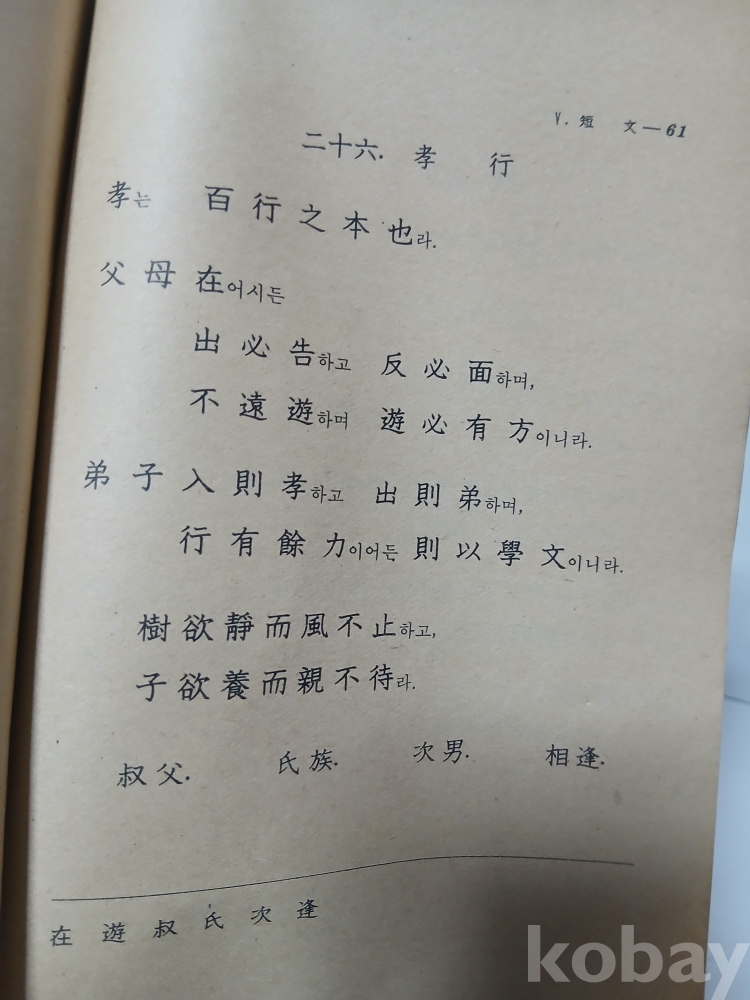 V. 短 文—61
二十六. 孝 行
孝는 百行之本也라.
父母在어시든
出必告하고 反必面하며,
不遠遊하며 遊必有方이니라.
弟子入則孝하고 出則弟하며,
行有餘力이어든 則以學文이니라.
樹欲靜而風不止하고,
子欲養而親不待라.
叔父. 氏族. 次男. 相逢.
在 遊 叔 氏 次 逢
kobay